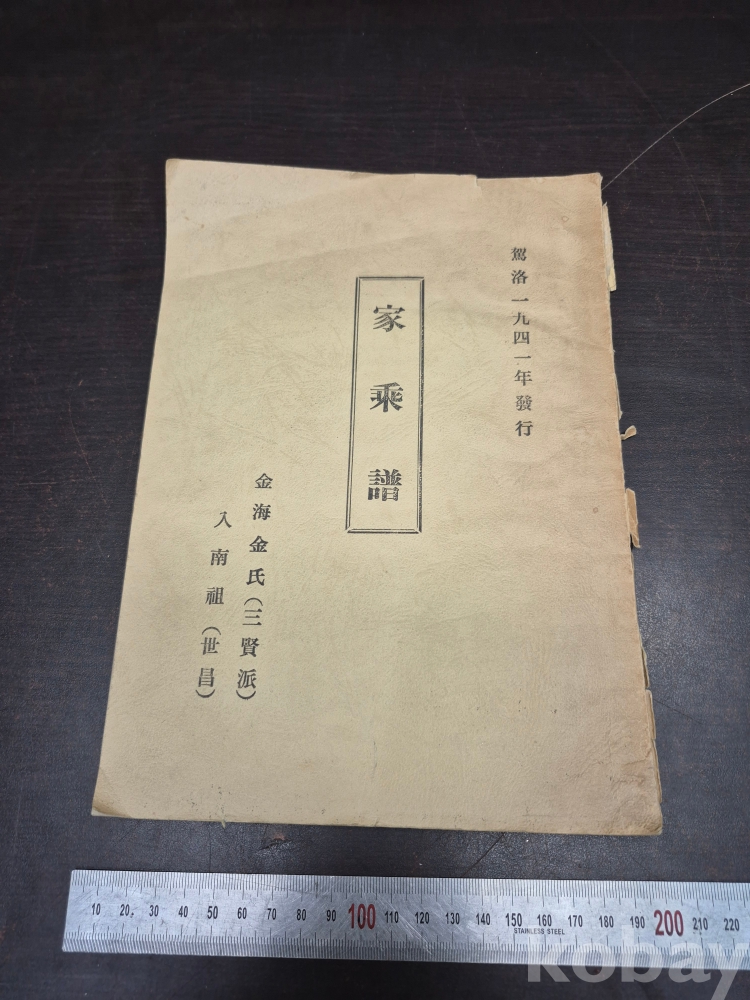 駕洛一九四一年發行
家乘譜
金海金氏(三賢派)
入南祖(世昌)
10 20 30 40 50 60 70 80 90 100 110 120 130 140 150 160 170 180 190 200 210 220
STAINLESS STEEL
kobay